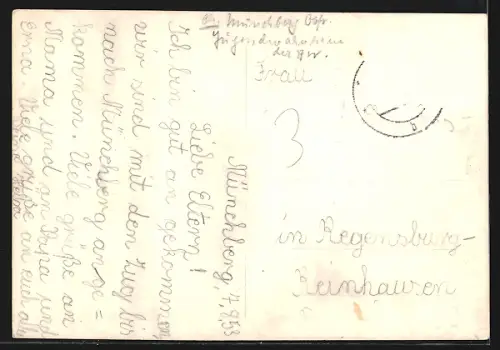 Münchberg, 7.9.53
Liebe Eltern!
Ich bin gut an gekommen
wir sind mit den Zug bis
nach Münchberg an ge=
kommen. Viele grüße an
Mama und an Papa und
Oma. Viele grüße an euch alle
Münchberg Ofr.
Jugendwohnheim
der
Frau
3
in Regensburg-
Reinhausen